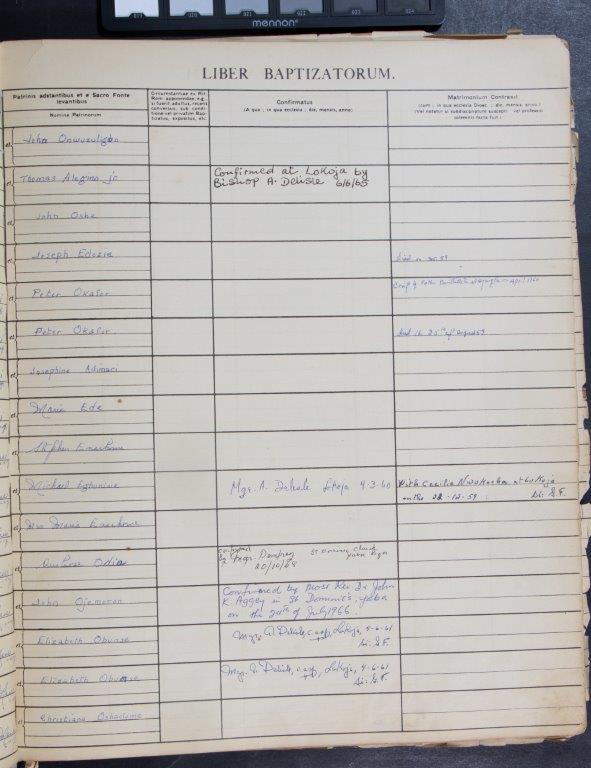 019 020 021 022 023
mennon
LIBER BAPTIZATORUM.
Patrinis adstantibus et e Sacro Fonte
levantibus
Nomina Patrinorum
Circumstantiae ex Rit.
Rom. apponendae, e.g.,
si fuerit adultus, recens
conversus, sub condi-
tione vel privatim Bap-
tizatus, expositus, etc.
Confirmatus
(A quo ; in qua ecclesia ; die, mensis, anno)
Matrimonium Contraxit
(cum ; in qua ecclesia Dioec. ; die, mensis, anno.)
(Vel notetur si subdiaconatum suscepit vel professio
solemnis facta fuit.)
et John Onwuzuligbo
et Thomas Alegma jr
Confirmed at Lokoja by
Bishop A. Delisle 6/6/65
et John Oshe
et Joseph Edozie
died
et Peter Okafor
April 1960
et Peter Okafor
died 20th of August 59
et Josephine Adimaci
et Maria Ede
et Stephen
et Michael
Mgr. A. Delisle Lokoja 4-3-60
With Cecilia Nwokocha at Lokoja
on the 28-12-59. G.F.
et Mrs Maria
et Odia
confirmed
by Mgr. Dempsey St Dominic Church
Yaba Lagos
20/10/68
et John Ojemeron
Confirmed by Most Rev Dr John
K. Aggey in St Dominic's, Yaba
on the 24th of July 1966.
et Elizabeth Obunse
Mgr. A. Delisle, c.ssp, Lokoja, 4-6-61
G.F.
et Elizabeth Obunse
Mgr. A. Delisle, c.ssp, Lokoja, 4-6-61
G.F.
et Christiana